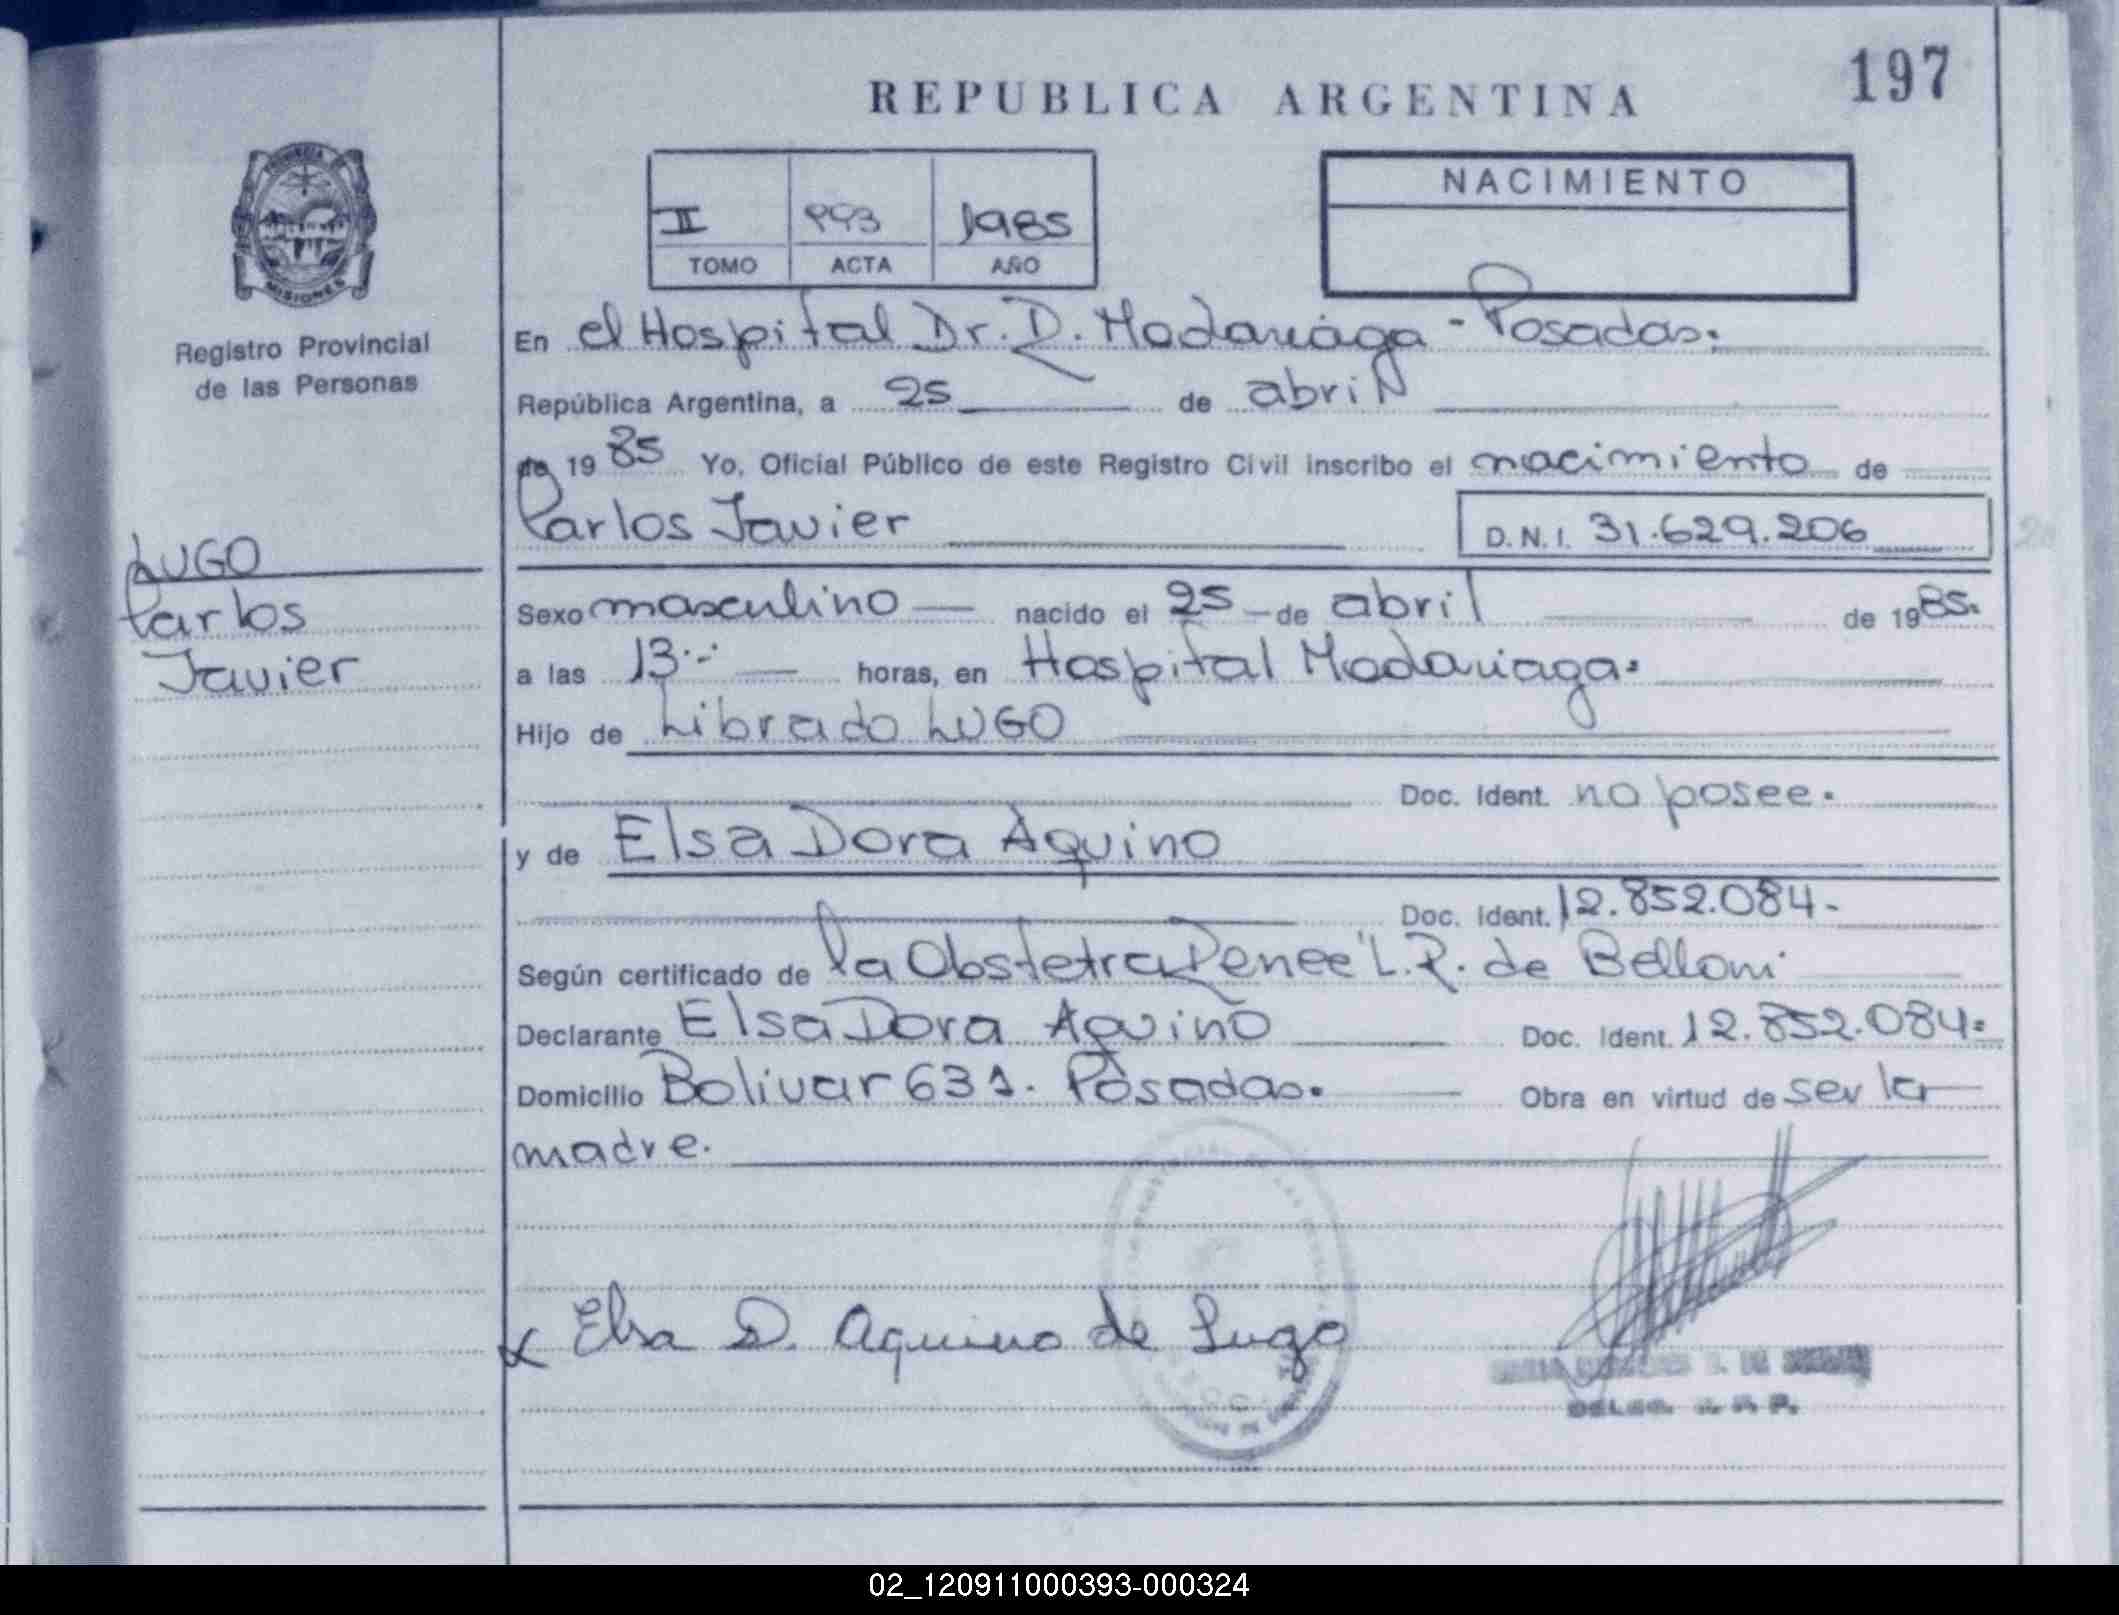 197
REPUBLICA ARGENTINA
PROVINCIA
MISIONES
Registro Provincial
de las Personas
II 1985
TOMO ACTA AÑO
NACIMIENTO
En el Hospital Dr. D. Madariaga - Posadas.
República Argentina, a 25 de abril
de 1985 Yo, Oficial Público de este Registro Civil inscribo el nacimiento de
Carlos Javier D.N.I. 31.629.206
LUGO
Carlos
Javier
Sexo masculino nacido el 25 de abril de 1985.
a las 13 horas, en Hospital Madariaga.
Hijo de Librado LUGO
Doc. Ident. no posee.
y de Elsa Dora Aquino
Doc. Ident. 12.852.084-
Según certificado de la Obstetra Renee L.R. de Belloni
Declarante Elsa Dora Aquino Doc. Ident. 12.852.084=
Domicilio Bolivar 631. Posadas. Obra en virtud de ser la
madre.
x Elsa D. Aquino de Lugo
DELEG. R. P. P.
02_120911000393-000324